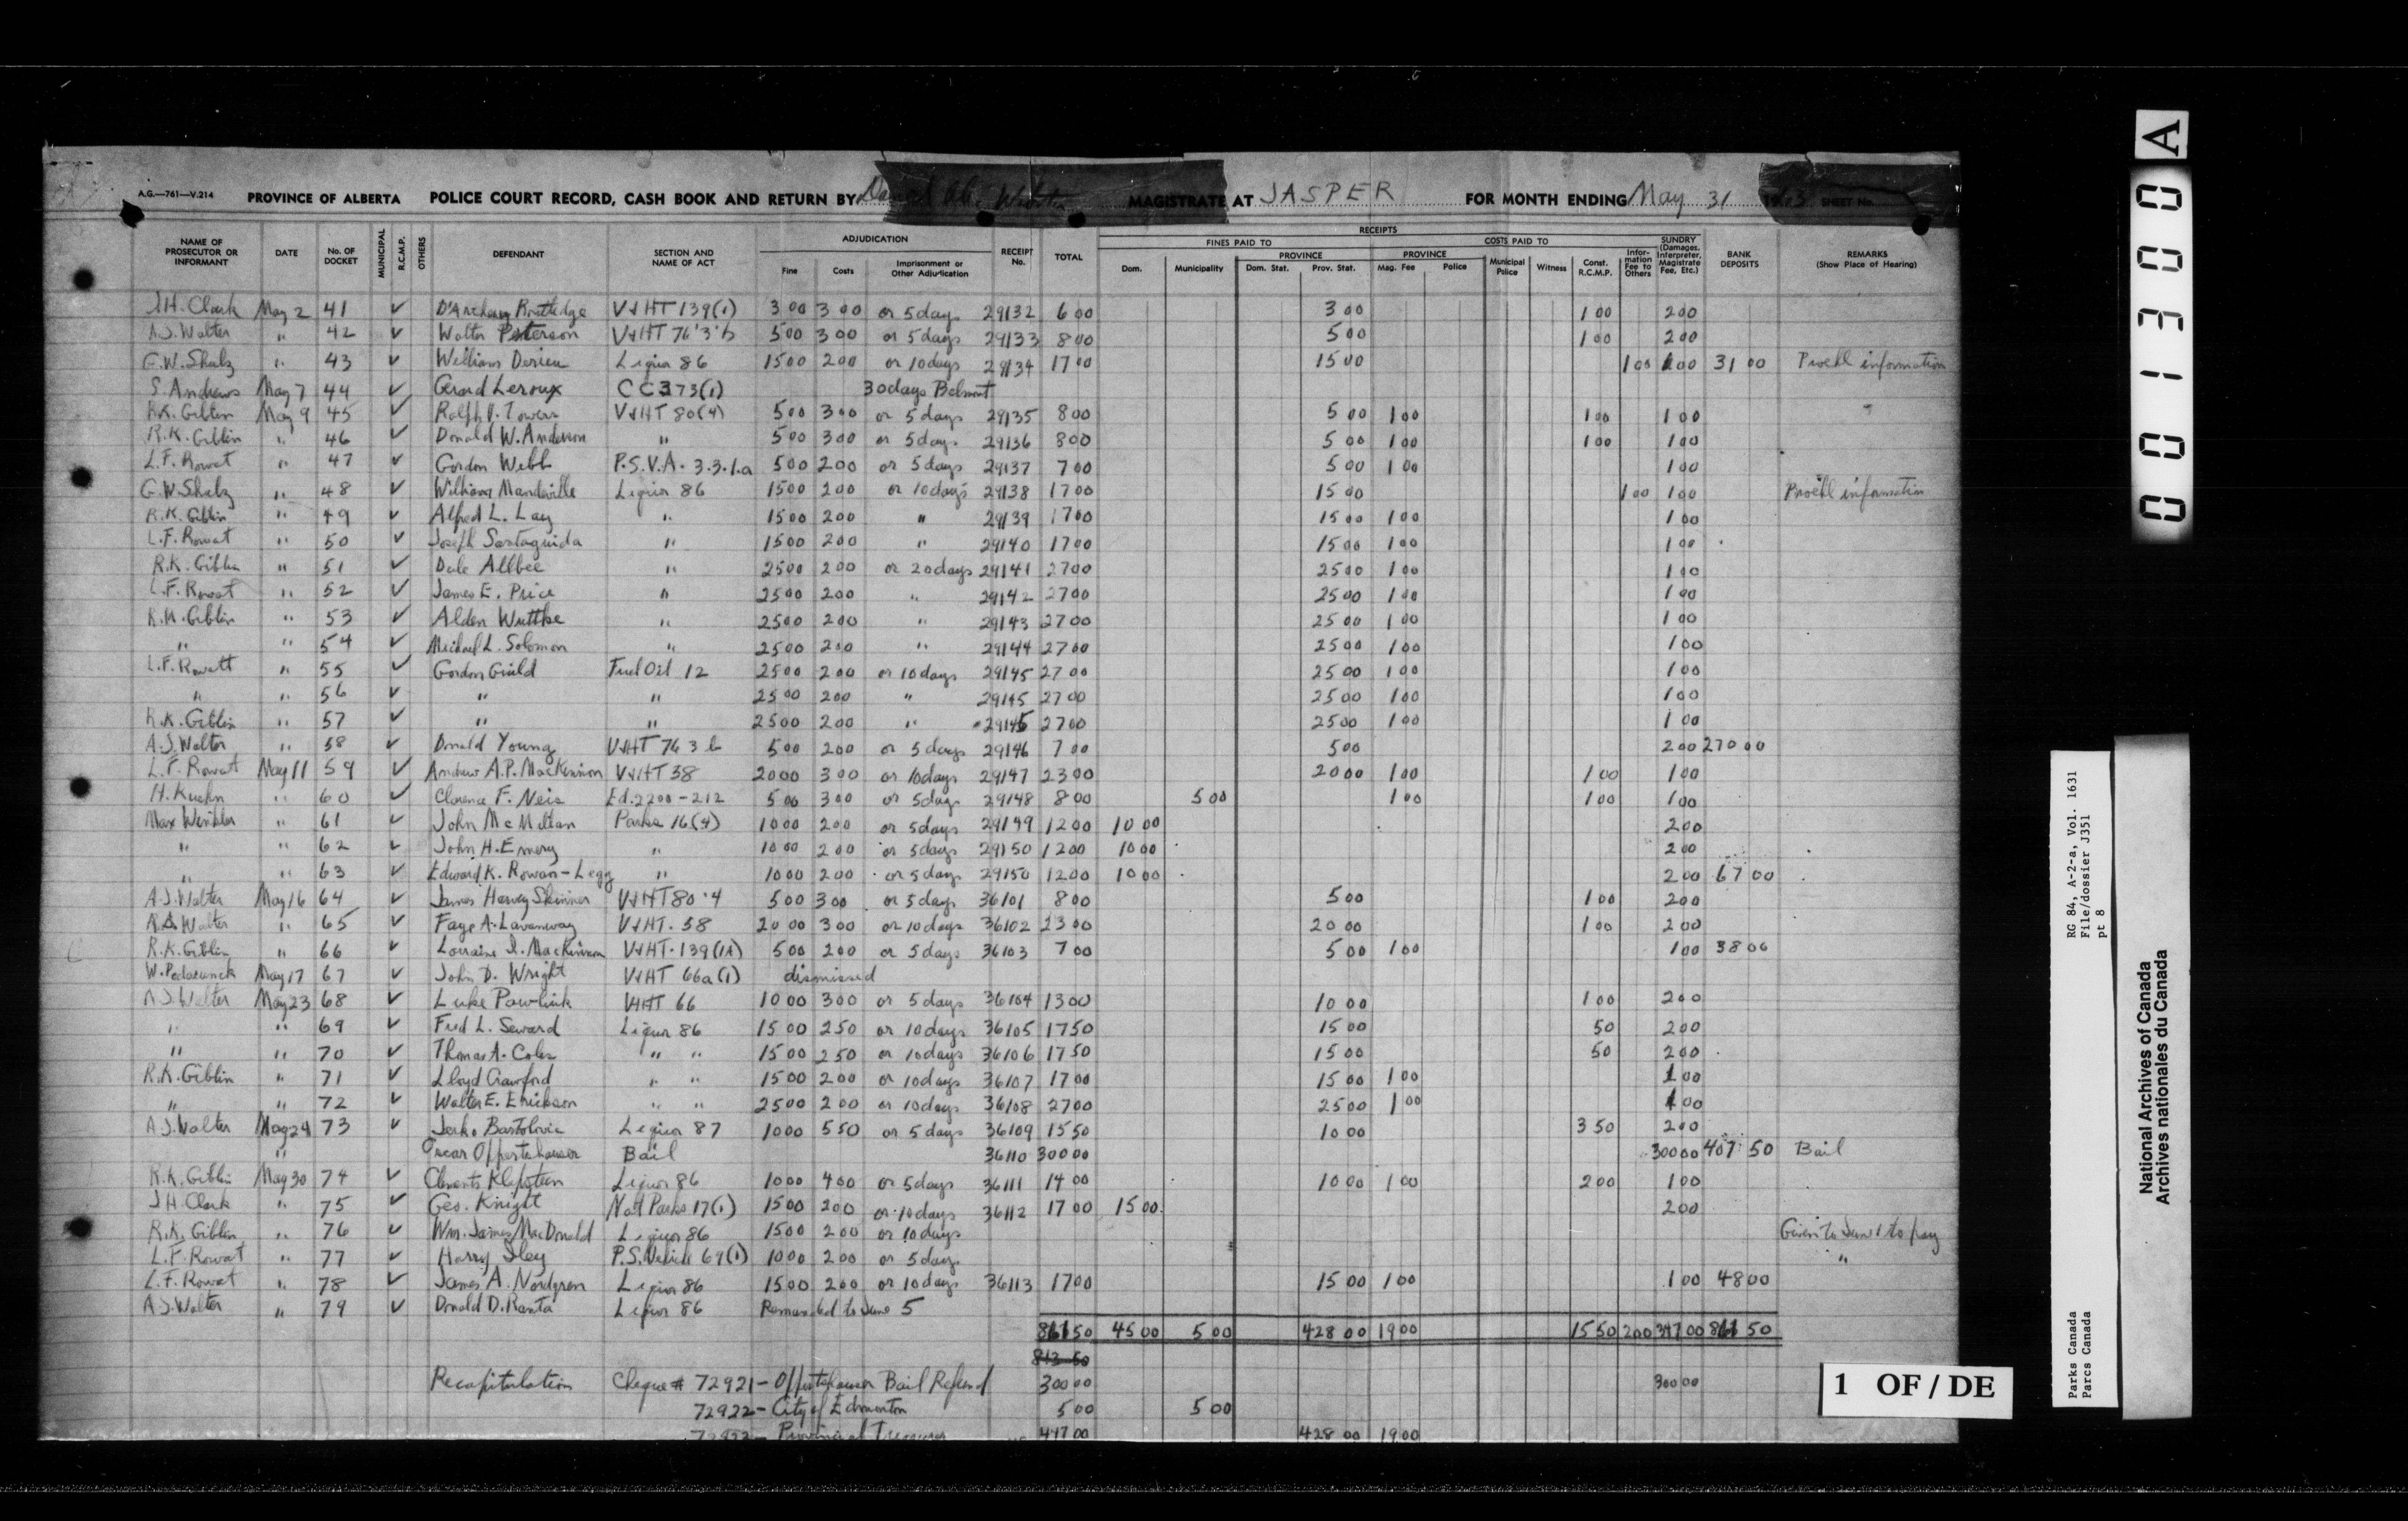 A.G.—761—V.214 PROVINCE OF ALBERTA POLICE COURT RECORD, CASH BOOK AND RETURN BY MAGISTRATE AT JASPER FOR MONTH ENDING May 31 SHEET No.
NAME OF PROSECUTOR OR INFORMANT DATE No. OF DOCKET MUNICIPAL R.C.M.P. OTHERS DEFENDANT SECTION AND NAME OF ACT ADJUDICATION Fine Costs Imprisonment or Other Adjudication RECEIPT No. TOTAL RECEIPTS FINES PAID TO Dom. Municipality PROVINCE Dom. Stat. Prov. Stat. COSTS PAID TO PROVINCE Mag. Fee Police Municipal Police Witness Const. R.C.M.P. Information Fee to Others SUNDRY (Damages, Interpreter, Magistrate Fee, Etc.) BANK DEPOSITS REMARKS (Show Place of Hearing)
J.H. Clark May 2 41 ✓ D'Archeny Routledge V&HT 139(1) 3 00 3 00 or 5 days 29132 6 00 3 00 1 00 2 00
A.J. Walter " 42 ✓ Walter Peterson V&HT 76'3'b 5 00 3 00 or 5 days 29133 8 00 5 00 1 00 2 00
G.W. Shulz " 43 ✓ William Derien Liquor 86 15 00 2 00 or 10 days 29134 17 00 15 00 1 00 1 00 31 00 information
S. Andrews May 7 44 ✓ Gerard Leroux CC373(1) 30 days Belmont
R.K. Giblin May 9 45 ✓ Ralph V. Towers V&HT 80(4) 5 00 3 00 or 5 days 29135 8 00 5 00 1 00 1 00 1 00
R.K. Giblin " 46 ✓ Donald W. Anderson " 5 00 3 00 or 5 days 29136 8 00 5 00 1 00 1 00 1 00
L.F. Rowat " 47 ✓ Gordon Webb P.S.V.A. 3.3.1.a 5 00 2 00 or 5 days 29137 7 00 5 00 1 00 1 00
G.W. Shulz " 48 ✓ William Mandeville Liquor 86 15 00 2 00 or 10 days 29138 17 00 15 00 1 00 1 00 information
R.K. Giblin " 49 ✓ Alfred L. Lay " 15 00 2 00 " 29139 17 00 15 00 1 00 1 00
L.F. Rowat " 50 ✓ Joseph Santaguida " 15 00 2 00 " 29140 17 00 15 00 1 00 1 00
R.K. Giblin " 51 ✓ Dale Allbee " 25 00 2 00 or 20 days 29141 27 00 25 00 1 00 1 00
L.F. Rowat " 52 ✓ James E. Price " 25 00 2 00 " 29142 27 00 25 00 1 00 1 00
R.K. Giblin " 53 ✓ Alden Wuttke " 25 00 2 00 " 29143 27 00 25 00 1 00 1 00
" " 54 ✓ Michael L. Solomon " 25 00 2 00 " 29144 27 00 25 00 1 00 1 00
L.F. Rowatt " 55 ✓ Gordon Guild Fuel Oil 12 25 00 2 00 or 10 days 29145 27 00 25 00 1 00 1 00
" " 56 ✓ " " 25 00 2 00 " 29145 27 00 25 00 1 00 1 00
R.K. Giblin " 57 ✓ " " 25 00 2 00 " 29145 27 00 25 00 1 00 1 00
A.J. Walter " 58 ✓ Donald Young V&HT 76 3 b 5 00 2 00 or 5 days 29146 7 00 5 00 2 00 270 00
L.F. Rowat May 11 59 ✓ Andrew A.P. MacKinnon V&HT 58 20 00 3 00 or 10 days 29147 23 00 20 00 1 00 1 00 1 00
H. Kuehn " 60 ✓ Clarence F. Neis Ed. 2200-212 5 00 3 00 or 5 days 29148 8 00 5 00 1 00 1 00 1 00
Max Winkler " 61 ✓ John McMillan Parks 16(4) 10 00 2 00 or 5 days 29149 12 00 10 00 2 00
" " 62 ✓ John H. Emery " 10 00 2 00 or 5 days 29150 12 00 10 00 2 00
" " 63 ✓ Edward K. Rowan-Legg " 10 00 2 00 or 5 days 29150 12 00 10 00 2 00 67 00
A.J. Walter May 16 64 ✓ James Harvey Skinner V&HT 80'4 5 00 3 00 or 5 days 36101 8 00 5 00 1 00 2 00
Walter " 65 ✓ Faye A. Lavanway V&HT. 58 20 00 3 00 or 10 days 36102 23 00 20 00 1 00 2 00
R.K. Giblin " 66 ✓ Lorraine I. MacKinnon V&HT. 139(1A) 5 00 2 00 or 5 days 36103 7 00 5 00 1 00 1 00 38 00
W. May 17 67 ✓ John D. Wright V&HT 66a(1) dismissed
A.J. Walter May 23 68 ✓ Luke Pawliuk V&HT 66 10 00 3 00 or 5 days 36104 13 00 10 00 1 00 2 00
" " 69 ✓ Fred L. Seward Liquor 86 15 00 2 50 or 10 days 36105 17 50 15 00 50 2 00
" " 70 ✓ Thomas A. Coles " " 15 00 2 50 or 10 days 36106 17 50 15 00 50 2 00
R.K. Giblin " 71 ✓ Lloyd Crawford " " 15 00 2 00 or 10 days 36107 17 00 15 00 1 00 1 00
" " 72 ✓ Walter E. Erickson " " 25 00 2 00 or 10 days 36108 27 00 25 00 1 00 1 00
A.J. Walter May 24 73 ✓ Jerko Bartolovic Liquor 87 10 00 5 50 or 5 days 36109 15 50 10 00 3 50 2 00
" Oscar Oppertshauser Bail 36110 300 00 300 00 407 50 Bail
R.K. Giblin May 30 74 ✓ Clements Liquor 86 10 00 4 00 or 5 days 36111 14 00 10 00 1 00 2 00 1 00
J.H. Clark " 75 ✓ Geo. Knight Nat Parks 17(1) 15 00 2 00 or 10 days 36112 17 00 15 00 2 00
R.K. Giblin " 76 ✓ Wm. James MacDonald Liquor 86 15 00 2 00 or 10 days Given to June 1 to pay
L.F. Rowat " 77 ✓ Harry Iley P.S. Vehicle 69(1) 10 00 2 00 or 5 days "
L.F. Rowat " 78 ✓ James A. Nordgren Liquor 86 15 00 2 00 or 10 days 36113 17 00 15 00 1 00 1 00 48 00
A.J. Walter " 79 ✓ Donald D. Ranta Liquor 86 Remanded to June 5
861 50 45 00 5 00 428 00 19 00 15 50 2 00 347 00 861 50
813 50
Recapitulation Cheque # 72921 - Oppertshauser Bail Refund 300 00 300 00
72922 - City of Edmonton 5 00 5 00
72923 - Provincial Treasurer 447 00 428 00 19 00
1 OF/DE
000 1300 A
Parks Canada RG 84, A-2-a, Vol. 1631
Parcs Canada File/dossier J351
pt 8
National Archives of Canada
Archives nationales du Canada